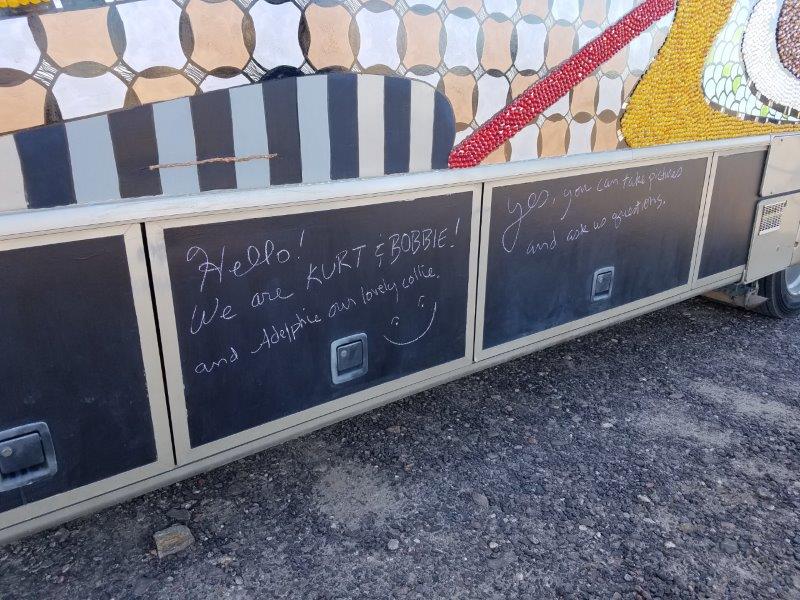 Hello!
We are KURT & BOBBIE!
and Adelphie our lovely collie.
yes, you can take pictures
and ask us questions.